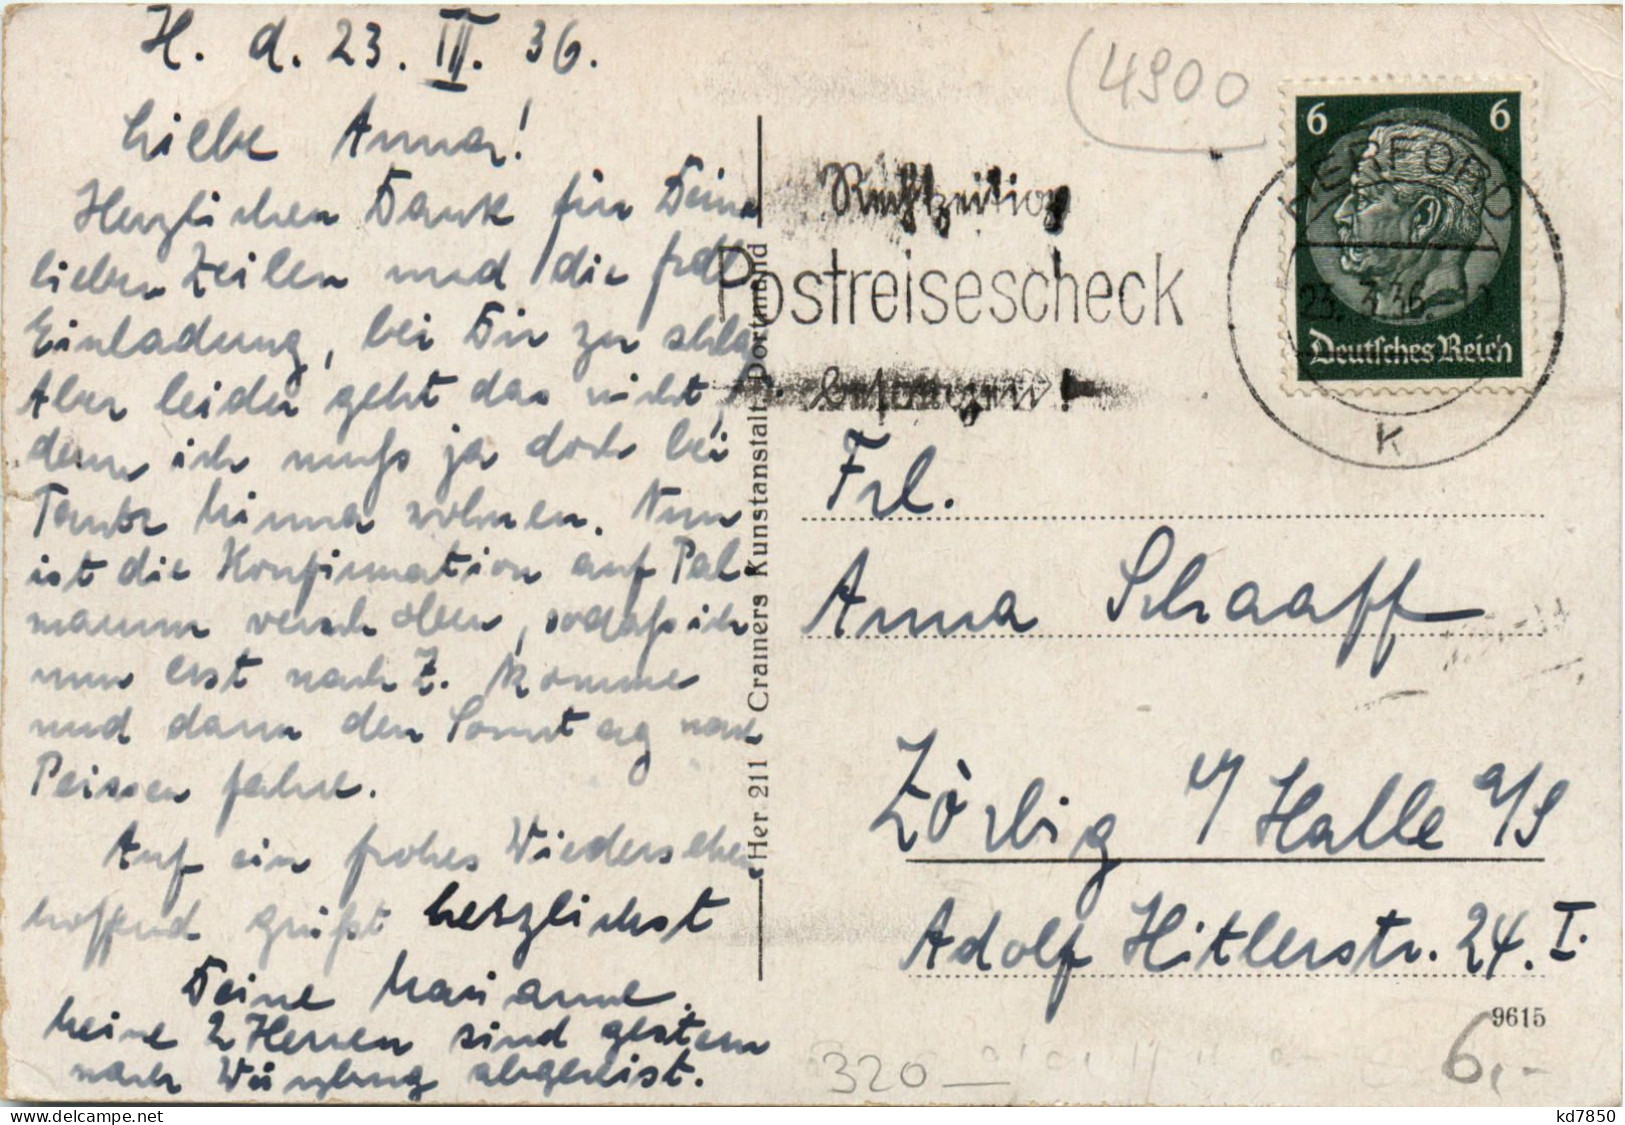 H. d. 23. III. 36.
Liebe Anna!
Herzlichen Dank für Deine
lieben Zeilen und die frdl.
Einladung, bei Dir zu schlaf.
Aber leider geht das nicht,
denn ich muß ja doch bei
Tante Minna wohnen. Nun
ist die Konfirmation auf Pal-
marum verschoben, sodaß ich
nun erst nach Z. komme
und dann den Sonntag nach
Peissen fahre.
Auf ein frohes Wiedersehen
hoffend grüßt herzlichst
Deine Marianne.
Meine 2 Herren sind gestern
nach Würzburg abgereist.
Her 211 Crainers Kunstanstalt Dortmund
(4900
Rechtzeitig
Postreisescheck
besorgen!
6 6
Deutsches Reich
HERFORD
23. 3. 36.
K
Frl.
Anna Schaaff
Zörbig b/ Halle a/S
Adolf Hitlerstr. 24. I.
9615
320 —
6,-
kd7850